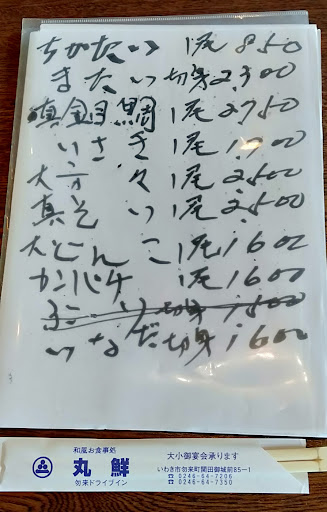 ちがたい 1尾 850
またい 切身 2.300
真金目鯛 1尾 2750
いさき 1尾 1.700
大方々 1尾 2.500
真そい 1尾 2.500
大どんこ 1尾 1600
カンパチ 1尾 1600
ぶり 切身 1500
いなだ 切身 1600
和風お食事処
丸鮮
勿来ドライブイン
大小御宴会承ります
いわき市勿来町関田御城前85−1
☎0246-64-7206
☎0246-64-7350